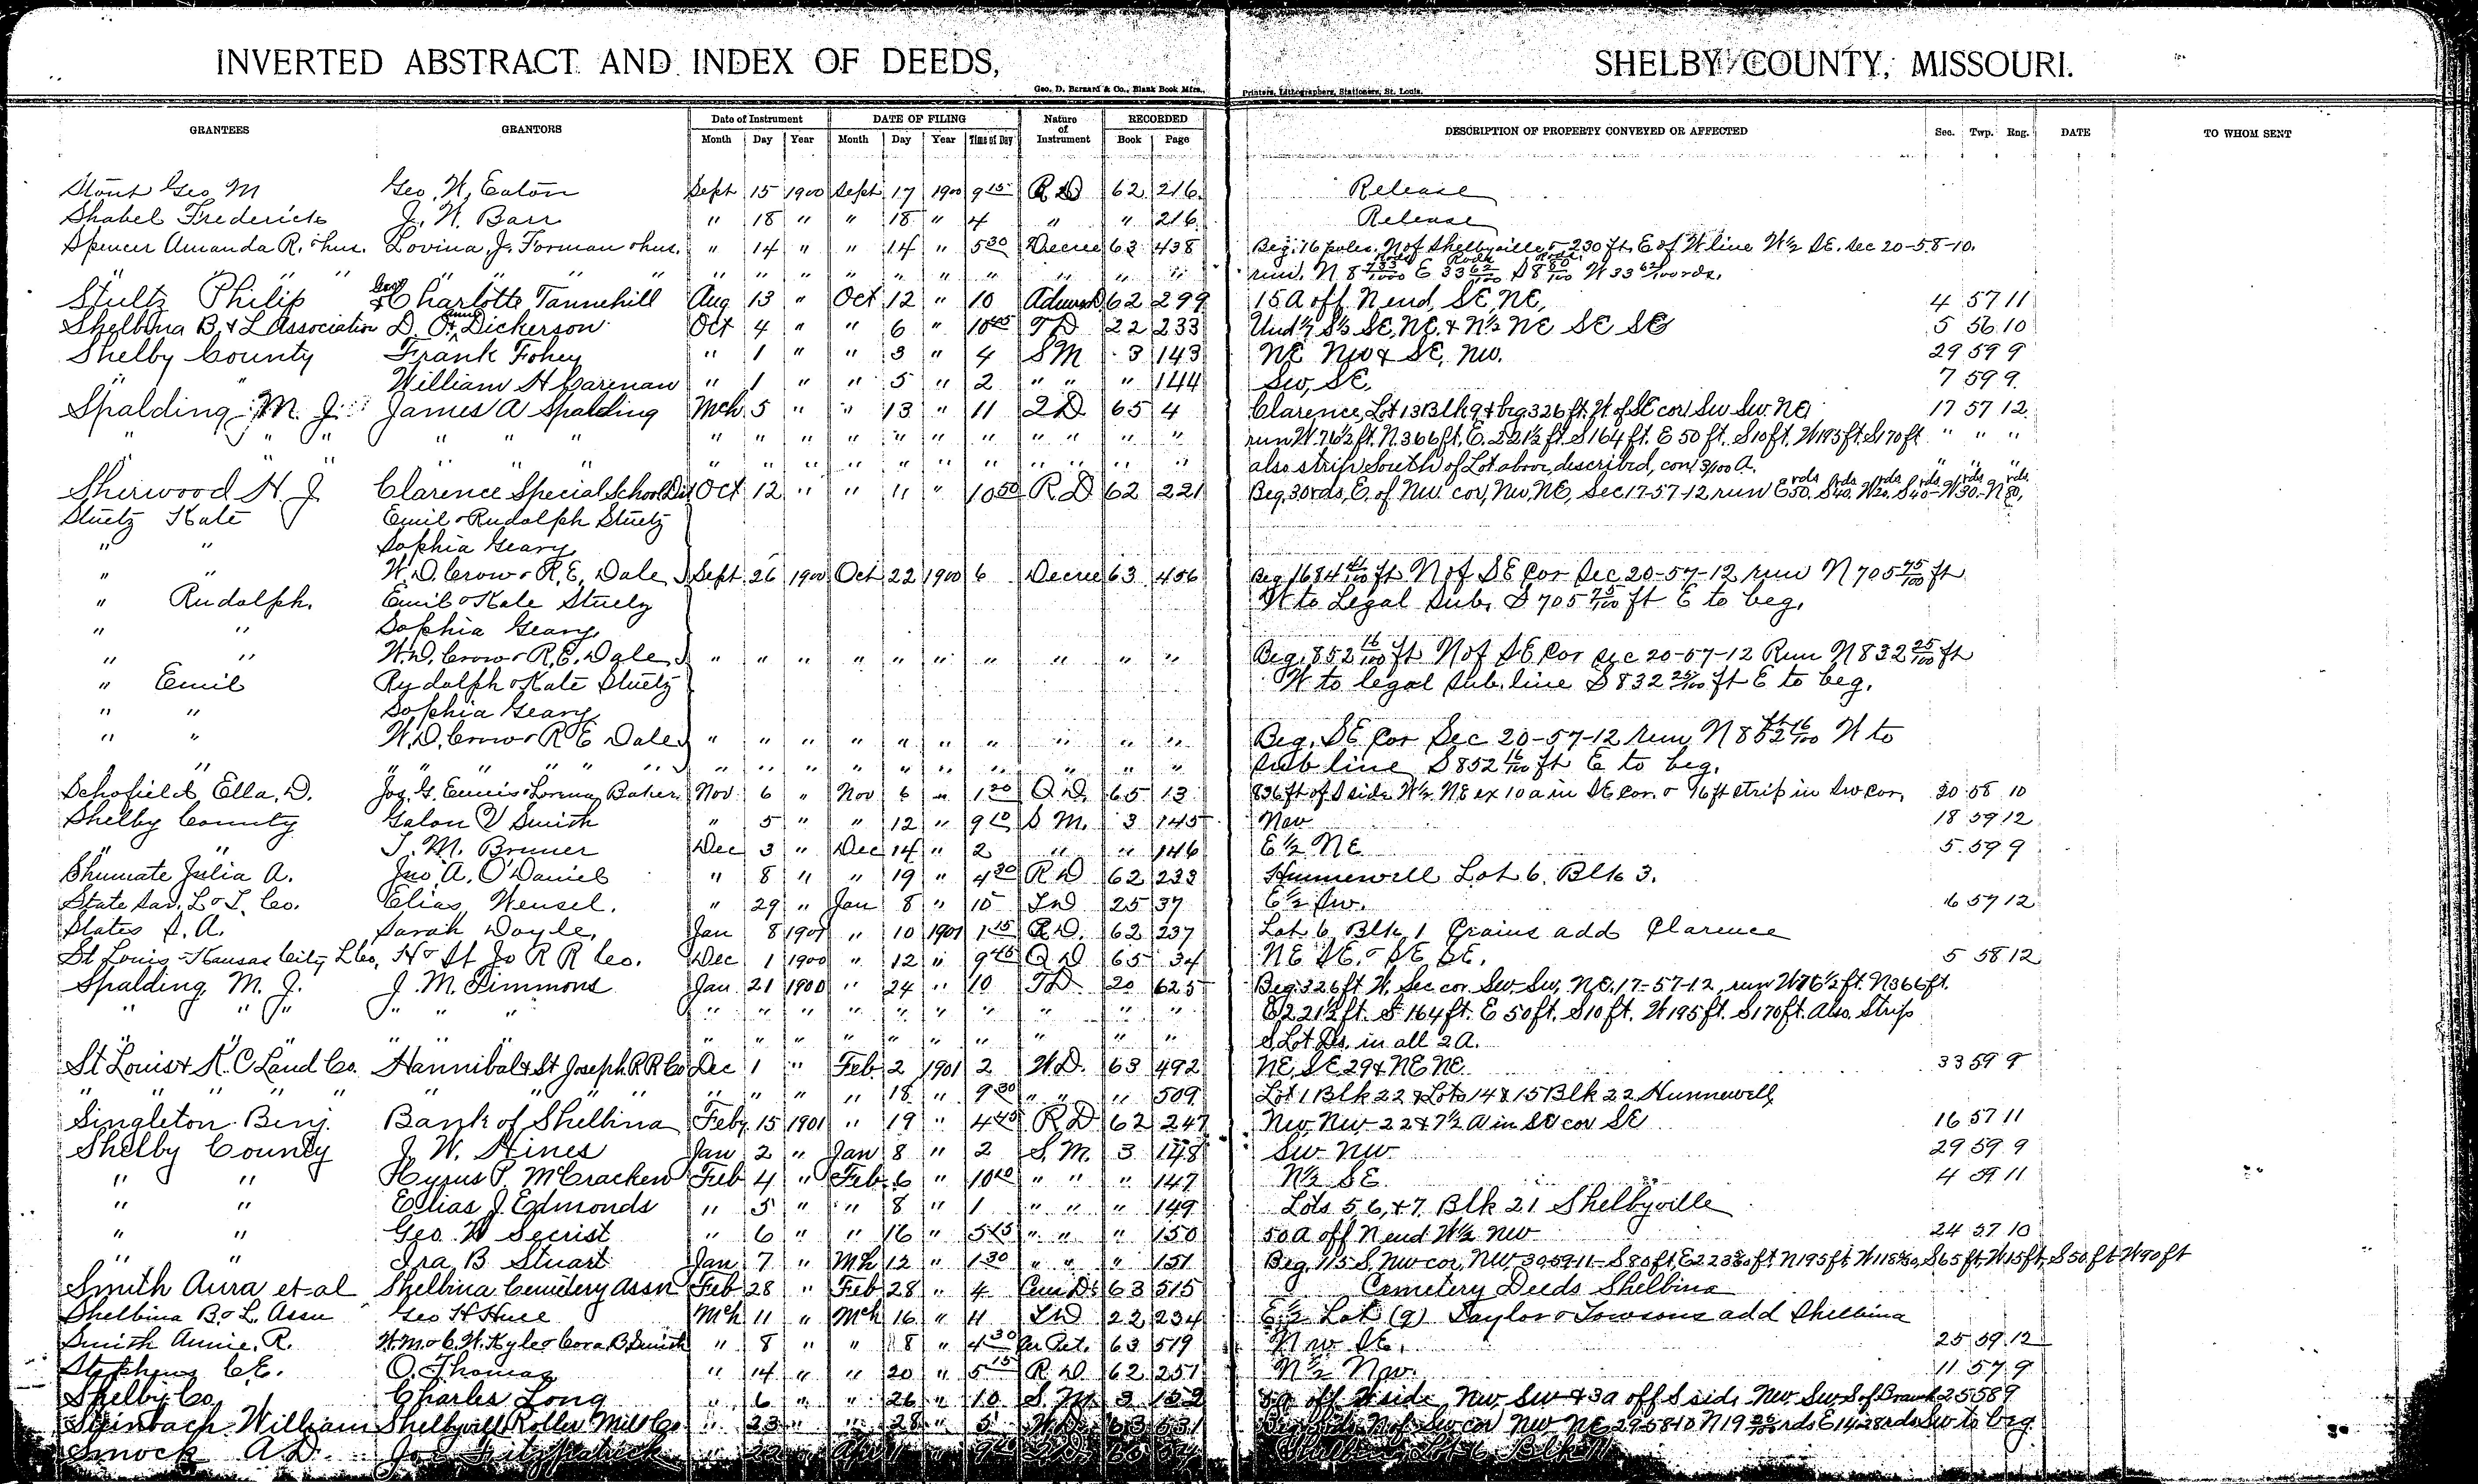 INVERTED ABSTRACT AND INDEX OF DEEDS, SHELBY COUNTY, MISSOURI.
Geo. D. Barnard & Co., Blank Book Mfrs., Printers, Lithographers, Stationers, St. Louis.
GRANTEES GRANTORS Date of Instrument DATE OF FILING Nature of Instrument RECORDED DESCRIPTION OF PROPERTY CONVEYED OR AFFECTED Sec. Twp. Rng. DATE TO WHOM SENT
Month Day Year Month Day Year Time of Day Book Page
Stout Geo M Geo. W. Eaton Sept 15 1900 Sept 17 1900 9 15 R D 62 216 Release
Shabel Frederick J. W. Barr " 18 " " 18 " 4 " " 216 Release
Spencer Amanda R. & hus. Lovina J. Forman & hus. " 14 " " 14 " 5 30 Decree 63 438 Beg. 16 poles N of Shelbyville & 230 ft. E of W line W½ SE. Sec 20-58-10.
" " " " " " " " " " " " " " " " " run N 8 E 33 62/100 S 8 W 33 62/100 rds.
Stultz Philip Geo & Charlotte Tannehill Aug 13 " Oct 12 " 10 62 299 15 A off N end, SE, NE, 4 57 11
Shelbina B. & L Association D. O. & Dickerson Oct 4 " " 6 " 10 45 T D 22 233 Und ½ S½ SE, NE. & N½ NE SE SE 5 56 10
Shelby County Frank Fohey " 1 " " 3 " 4 S M 3 143 NE NW & SE, NW. 29 59 9
" " William H Carman " 1 " " 5 " 2 " " " 144 SW, SE. 7 59 9
Spalding M. J. James A Spalding Mch 5 " " 13 " 11 Q D 65 4 Clarence, Lot 13 Blk 9 & beg 326 ft. W of SE cor SW SW NE 17 57 12
" " " " " " " " " " " " " " " " " run W. 76½ ft. N. 366 ft. E. 221½ ft S 164 ft. E 50 ft. S 10 ft. W 195 ft. S 170 ft " " "
" " " " " " " " " " " " " " " also strip South of Lot above described, con 3/100 A. " " "
Sherwood H. J. Clarence Special School Dist Oct 12 " " 11 " 10 50 R D 62 221 Beg. 30 rds, E. of NW cor, NW, NE, Sec 17-57-12 run E 50 rds. S 40 rds. W 20 rds. S 40 rds - W 30 rds. - N 80 rds.
Stuetz Kate Emil & Rudolph Stuetz
" " Sophia Geary
" " W. D. Crow & R. E. Dale Sept 26 1900 Oct 22 1900 6 Decree 63 456 Beg 1684 41/100 ft N of SE Cor Sec 20-57-12 run N 705 75/100 ft
" Rudolph. Emil & Kate Stuetz W to Legal Sub. S 705 75/100 ft E to beg.
" " Sophia Geary
" " W. D. Crow & R. E. Dale " " " " " " " " " " Beg. 852 16/100 ft N of SE Cor Sec 20-57-12 Run N 832 25/100 ft
" Emil Rudolph & Kate Stuetz W to legal sub. line S 832 25/100 ft E to beg.
" " Sophia Geary
" " W. D. Crow & R E Dale " " " " " " " " " " Beg. SE Cor Sec 20-57-12 run N 852 16/100 ft W to
" " " " " " " " " " " " " " " " " sub line S 852 16/100 ft E to beg.
Schofield Ella. D. Jos. G. Ennis & Lorena Baker Nov 6 " Nov 6 " 1 30 Q D. 65 13 836 ft of S side W½ NE ex 10 a in SE cor. & 16 ft strip in SW cor. 20 58 10
Shelby County Galon V Smith " 5 " " 12 " 9 10 S M. 3 145 NW 18 59 12
" " T. M. Bruner Dec 3 " Dec 14 " 2 " " 146 E½ NE 5 59 9
Shumate Julia A. Jno. A. O'Daniel " 8 " " 19 " 4 30 R D 62 233 Hunnewell Lot 6. Blk 3.
State Sav. L & T. Co. Elias Wensel. " 29 " Jan 8 " 10 T D 25 37 E½ SW. 16 57 12
States S. A. Sarah Doyle, Jan 8 1901 " 10 1901 1 15 R D. 62 237 Lot 6 Blk 1 Crains add Clarence
St Louis & Kansas City L Co, H & St Jo R R Co. Dec 1 1900 " 12 " 9 45 Q D 65 34 NE SE. & SE SE. 5 58 12
Spalding M. J. J. M. Timmons Jan 21 1900 " 24 " 10 T D 20 625 Beg. 326 ft W, Sec cor. SW. SW, NE. 17-57-12, run W 76½ ft. N 366 ft.
" " " " " " " " " " " " " " " " E 221½ ft. S 164 ft. E 50 ft. S 10 ft. W 195 ft. S 170 ft. Also Strip
" " " " " " " " " " " " " " " S. Lot Ds. in all 2 A.
St Louis & K. C Land Co. Hannibal & St Joseph R R Co Dec 1 " Feb. 2 1901 2 W D. 63 492 NE, SE 29 & NE NE. 33 59 9
" " " " " " " " " " " " 18 " 9 30 " " " 509 Lot 1 Blk 22 & Lots 14 & 15 Blk 22 Hunnewell
Singleton Benj. Bank of Shelbina Feby 15 1901 " 19 " 4 45 R D 62 247 NW, NW - 22 & 7½ A in SE cor SE 16 57 11
Shelby County J. W. Hines Jan 2 " Jan 8 " 2 S. M. 3 148 SW NW 29 59 9
" " Hyrus P. McCracken Feb 4 " Feb. 6 " 10 10 " " " 147 N½ SE. 4 59 11
" " Elias J. Edmonds " 5 " " 8 " 1 " " " 149 Lots 5, 6, & 7 Blk 21 Shelbyville
" " Geo W Secrist " 6 " " 16 " 5 45 " " " 150 50 A off N end W½ NW 24 57 10
" " Ira B Stuart Jan 7 " Mch 12 " 1 30 " " " 151 Beg. 115 S, NW cor, NW, 30-59-11 - S 80 ft, E 223 ft N 195 ft, W 118 S 65 ft, W 15 ft, S 50 ft W 90 ft
Smith Aura et al Shelbina Cemetery Assn Feb 28 " Feb 28 " 4 Cem Ds 63 515 Cemetery Deeds Shelbina
Shelbina B. & L. Assn Geo H Hull Mch 11 " Mch 16 " 11 T D 22 234 E½ Lot (9) Taylor & Towsons add Shelbina
Smith Annie. R. W. M. & C. W. Kyle & Cora B. Smith " 8 " " 18 " 4 30 63 519 NW SE. 25 59 12
Stephens C E. O. Thomas " 14 " " 20 " 5 15 R. D 62 251 N½ NW. 11 57 9
Shelby Co. Charles Long " 6 " " 26 " 10 S. M. 3 152 off side NW, SW & 3 a off S side NW. SW, S of Branch 25 58 9
Steinbach William Shelbyville Roller Mill Co " 23 " " 28 " 5 W D. 63 531 N of SW cor NW NE 29-58-10 N 19 rds E 14 28 rds SW to beg
Smock A D. Joe Fitzpatrick " 22 " Apr 1 " Shelbina Lot 6 Blk